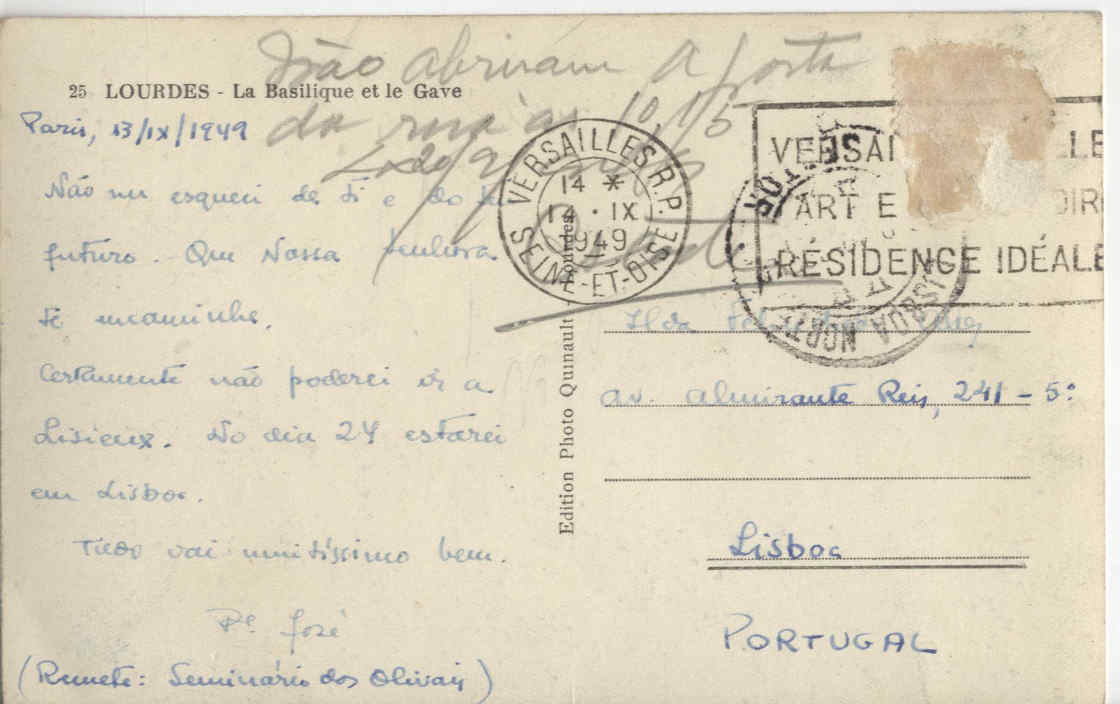 Não abriram a porta
25 LOURDES - La Basilique et le Gave
da rua às 10,15
Paris, 13/IX/1949
Não me esqueci de ti e do teu
futuro. Que Nossa Senhora
te encaminhe.
Certamente não poderei ir a
Lisieux. No dia 24 estarei
em Lisboa.
Tudo vai muitíssimo bem.
Pe José
(Remete: Seminário dos Olivais)
Edition Photo Quinault - Lourdes
VERSAILLES R.P.
14 *
14 · IX
1949
SEINE-ET-OISE
VERSAI LLE
ART E OIR
RÉSIDENCE IDÉALE
LISBOA NORTE
Ilda
Av. Almirante Reis, 241 - 5º
Lisboa
PORTUGAL